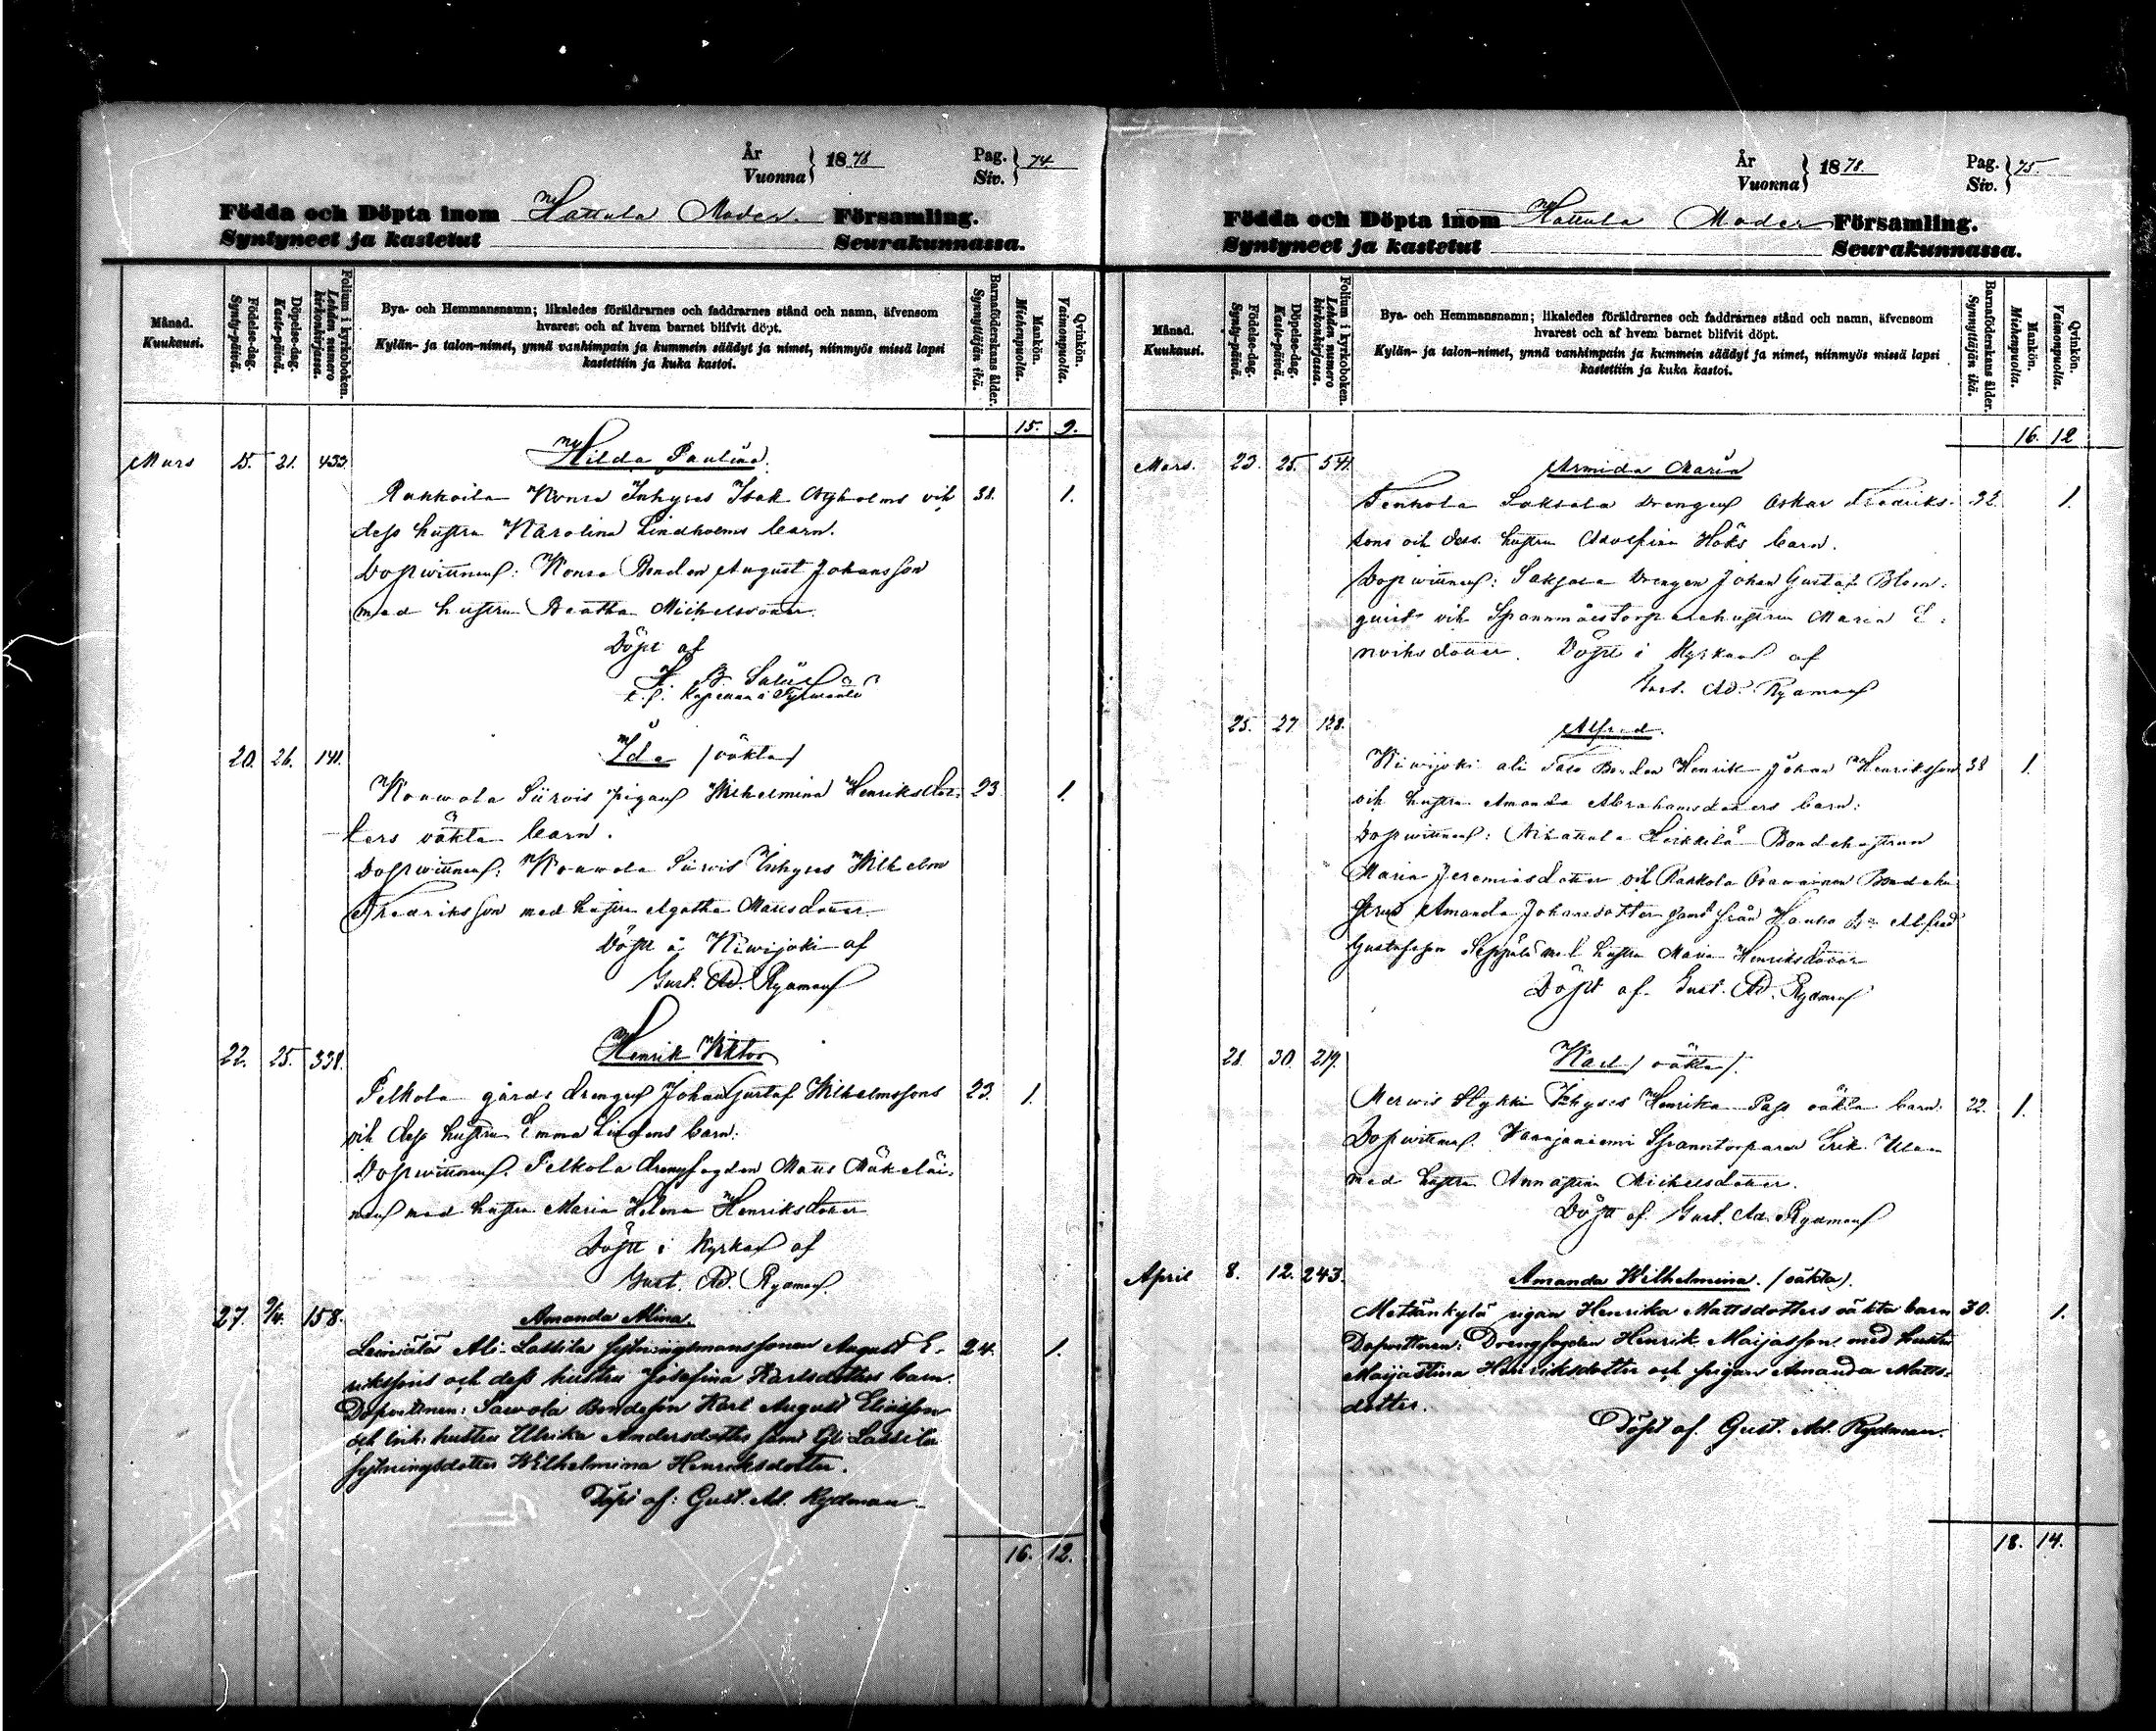 År
Vuonna } 1878
Pag.
Siv. } 74
Födda och Döpta inom Hattula Moder Församling.
Syntyneet ja kastetut Seurakunnassa.
Månad.
Kuukausi.
Födelse-dag.
Synty-päivä.
Döpelse-dag.
Kaste-päivä.
Folium i kyrkoboken.
Lehden numero
kirkonkirjassa.
Bya- och Hemmansnamn; likaledes föräldrarnes och faddrarnes stånd och namn, äfvensom
hvarest och af hvem barnet blifvit döpt.
Kylän- ja talon-nimet, ynnä vanhimpain ja kummein säädyt ja nimet, niinmyös missä lapsi
kastettiin ja kuka kastoi.
Barnaföderskans ålder.
Synnyttäjän ikä.
Mankön.
Miehenpuolia.
Qvinkön.
Vaimonpuolia.
15. 9.
Mars 15. 21. 433. Hilda Paulina.
Rahkoila Konra Inhyses Isak Nyholms och 38. 1.
dess hustru Karolina Lindholms barn.
Dopvittnen: Konra Bonden August Johansson
med hustru Beatha Michelsdotter.
Döpt af
t.f. Kapellan i Tyrwäntö
20. 26. 141. Ida (oäkta)
Kouwola Siirois pigan Wilhelmina Henriksdot- 23. 1.
ters oäkta barn.
Dopvittnen: Kouwola Inhyses Wilhelm
Fredriksson med hustru Agatha Mattsdotter
Döpt i Kiwijoki af
Gust. Ad. Rydman
22. 25. 338. Henrik Viktor
Pelkola gårds drengen Johan Gustaf Wilhelmssons 23. 1.
och dess hustru Emma barn:
Dopvittnen. Pelkola drengfogden Matts Mäkeläi-
nen med hustru Maria Helena Henriksdotter
Döpt i Kyrkan af
Gust. Ad. Rydman.
27. 9/4. 158. Amanda Alina.
Leiniälä Ali-Lassila sytningsmanssonen August E- 24. 1.
rikssons och dess hustru Josefina Karlsdotters barn.
Dopvittnen: Sawola Bondesön Karl August Eliasson
och hustru Ulrika Andersdotter samt Lassila
sytningsdotter Wilhelmina Henriksdotter.
Döpt af: Gust. Ad. Rydman
16. 12.
År
Vuonna } 1878.
Pag.
Siv. } 75.
Födda och Döpta inom Hattula Moder Församling.
Syntyneet ja kastetut Seurakunnassa.
Månad.
Kuukausi.
Födelse-dag.
Synty-päivä.
Döpelse-dag.
Kaste-päivä.
Folium i kyrkoboken.
Lehden numero
kirkonkirjassa.
Bya- och Hemmansnamn; likaledes föräldrarnes och faddrarnes stånd och namn, äfvensom
hvarest och af hvem barnet blifvit döpt.
Kylän- ja talon-nimet, ynnä vanhimpain ja kummein säädyt ja nimet, niinmyös missä lapsi
kastettiin ja kuka kastoi.
Barnaföderskans ålder.
Synnyttäjän ikä.
Mankön.
Miehenpuolia.
Qvinkön.
Vaimonpuolia.
16. 12
Mars. 23. 25. Armida Maria
Tenhola Saksala drengen Oskar Fredriks- 32. 1.
sons och dess hustru Adolfina Höks barn.
Dopvittnen: Saksala Drengen Johan Gustaf Blom-
quist och hustru Maria E-
noksdotter. Döpt i Kyrkan af
Gust. Ad. Rydman
25. 27. 128. Alfred.
Kiwijoki ali Talo Bonden Henrik Johan Henriksson 38 1.
och hustru Amanda Abrahamsdotters barn:
Dopvittnen: Nihattula Heikkilä Bondehustrun
Maria Jeremiasdotter och Rahkola Bondehu
strun Amanda Johansdotter samt från Hauho Alfred
Gustafsson Seppälä med hustru Maria Henriksdotter
Döpt af Gust. Ad. Rydman
28. 30. 219. Karl (oäkta).
Merwis Inhyses Henrika oäkta barn. 22. 1.
Dopvittnen. Wanajaniemi Spanntorparen Erik
med hustru Annastina Michelsdotter.
Döpt af Gust. Ad. Rydman
April 8. 12. 243. Amanda Wilhelmina. (oäkta).
Metsänkylä pigan Henrika Mattsdotters oäkta barn 30. 1.
Dopvittnen: Drengfogden Henrik Maijasson med hustru
Maijastina Henriksdotter och pigan Amanda Matts-
dotter.
Döpt af Gust. Ad. Rydman.
18. 14.